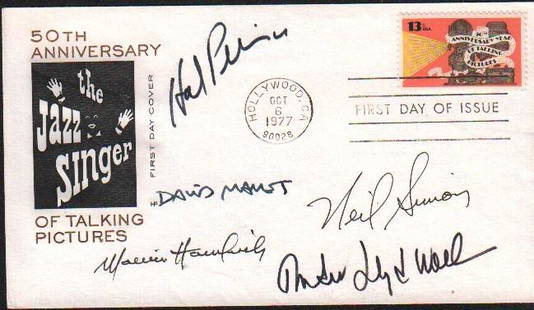 50TH
ANNIVERSARY
the
Jazz
SINGER
OF TALKING
PICTURES
FIRST DAY COVER
Hal Prince
DAVID MAMET
Neil Simon
HOLLYWOOD, CA
OCT
6
1977
90028
13c USA
50th
ANNIVERSARY YEAR
OF TALKING
PICTURES
FIRST DAY OF ISSUE